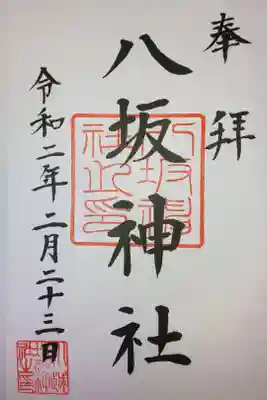 奉拝
八坂神社
令和二年二月二十三日